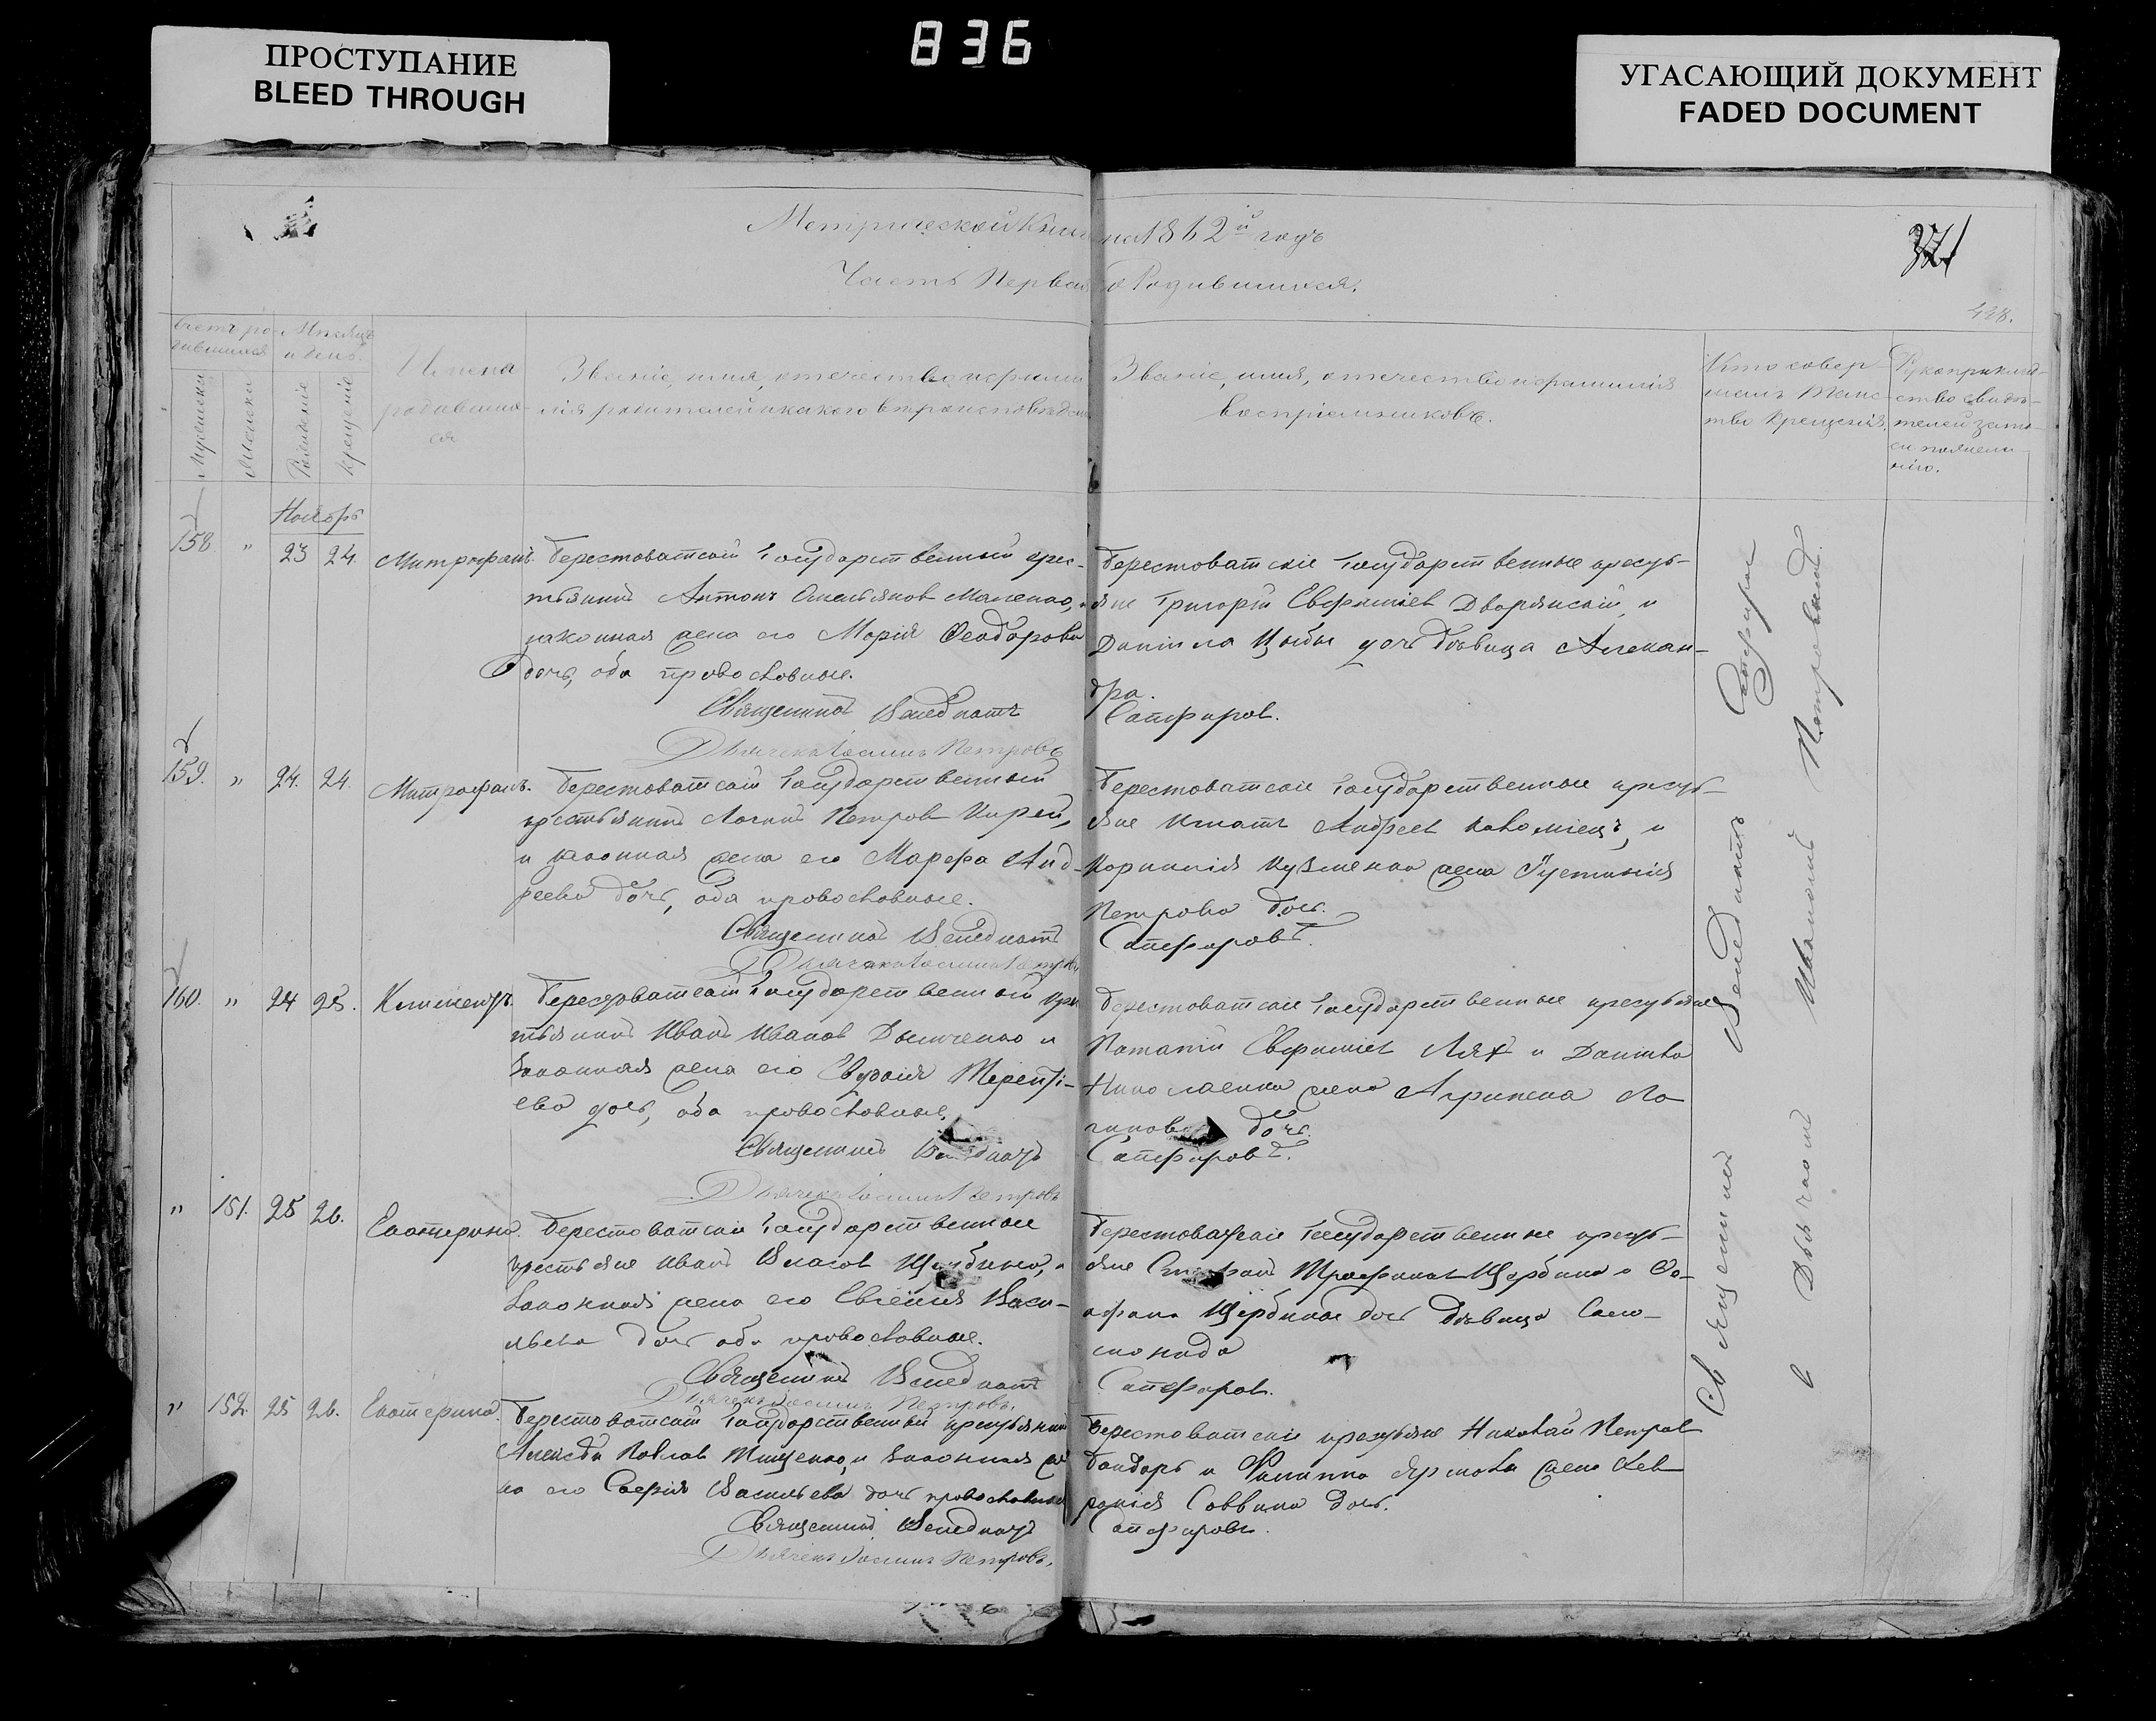 ПРОСТУПАНИЕ
BLEED THROUGH
836
УГАСАЮЩИЙ ДОКУМЕНТ
FADED DOCUMENT
Метрической Книги на 1862й годъ
Часть Первая о Родившихся.
321
428.
Счетъ родившихся
Мужеска
Женска
Мѣсяцъ и день.
Рожденіе
Крещеніе
Имена
родивших-
ся
Званіе, имя, отечество и фами-
лія родителей и какого вѣроисповѣданія
Званіе, имя, отечество и фамилія
воспріемниковъ.
Кто совер-
шалъ Таинс-
тво Крещенія.
Рукоприклад-
ство свидѣ-
телей записи
по желанію.
Ноябрь
158. " 23 24. Митрофанъ.
Берестоватскій Государственный крес-
тьянинъ Антонъ Омельянов Маленко, и
законная жена его Марія Феодорова
дочь, оба православные.
Священникъ Венедиктъ
Дьячекъ Іоаннъ Петровъ
Берестоватскіе Государственные кресть-
яне Григорій Евфиміев Дворянскій, и
Даніила Цыбы дочь дѣвица Алексан-
дра.
Сапфиров.
159. " 24. 24. Митрофанъ.
Берестоватскій Государственный
крестьянинъ Логинъ Петров Кирей,
и законная жена его Марфа Анд-
реева дочь, оба православные.
Священникъ Венедиктъ
Дьячекъ Іоаннъ Петровъ
Берестоватскіе Государственные кресть-
яне Игнатъ Андреев Коломіецъ, и
Корнилія Кузменка жена Іустинія
Петрова дочь.
Сапфировъ.
160. " 24 25. Климентъ.
Берестоватскій Государственный крес-
тьянинъ Иванъ Иванов Дынченко и
законная жена его Евдокія Теренті-
ева дочь, оба православные.
Священникъ Венедиктъ
Дьячекъ Іоаннъ Петровъ
Берестоватскіе Государственные крестьяне
Потапій Евфиміев Лях и Данила
Николаенка жена Агрипена Ло-
гинова дочь.
Сапфировъ.
" 151. 25 26. Екатерина.
Берестоватскіе Государственные
крестьяне Иванъ Власов Щербина, и
законная жена его Евгенія Васи-
льева дочь оба православные.
Священникъ Венедиктъ
Дьячекъ Іоаннъ Петровъ.
Берестоватскіе Государственные кресть-
яне Трофимов Щербина и
Щербины дочь дѣвица Соло-
монида
Сапфиров.
" 152. 25 26. Екатерина.
Берестоватскій Государственный крестьянинъ
Алексѣй Павлов Тищенко, и законная же-
на его Софія Васильева дочь православные
Священникъ Венедиктъ
Дьячекъ Іоаннъ Петровъ.
Берестоватскіе крестьяне Николай Петров
Бондарь и Филиппа Ярмолы жена Фев-
ронія Саввина дочь.
Сапфировъ.
Священникъ Венедиктъ Сапфиров
с Дьячкомъ Иваномъ Петровымъ.